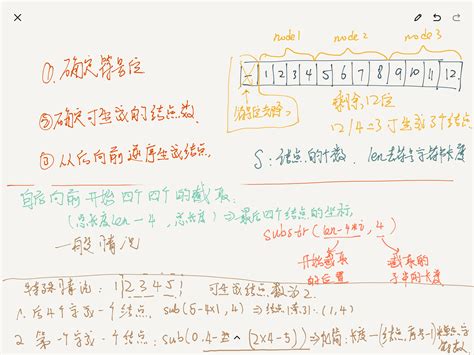 node1 node2 node3
①. 确定符号位
- 1 2 3 4 5 6 7 8 9 10 11 12
②确定可生成的结点数.
剩余12位
12/4=3可生成3个结点
③ 从后向前逐序生成结点.
S: 结点的个数. len去符号字符长度
自后向前开始四个四个的截取.
(总长度len-4, 总长度) ⇒最后四个结点的坐标
一般情况
substr(len-4*i, 4)
开始截取的位置
截取的字串的长度
特殊情况: 1 2 3 4 5! 可生成结点数为2.
1. 后4个字成一个结点. sub(5-4x1, 4)⇒ (1,4)
2. 第一个字成一个结点: sub(0, (2x4-5))⇒